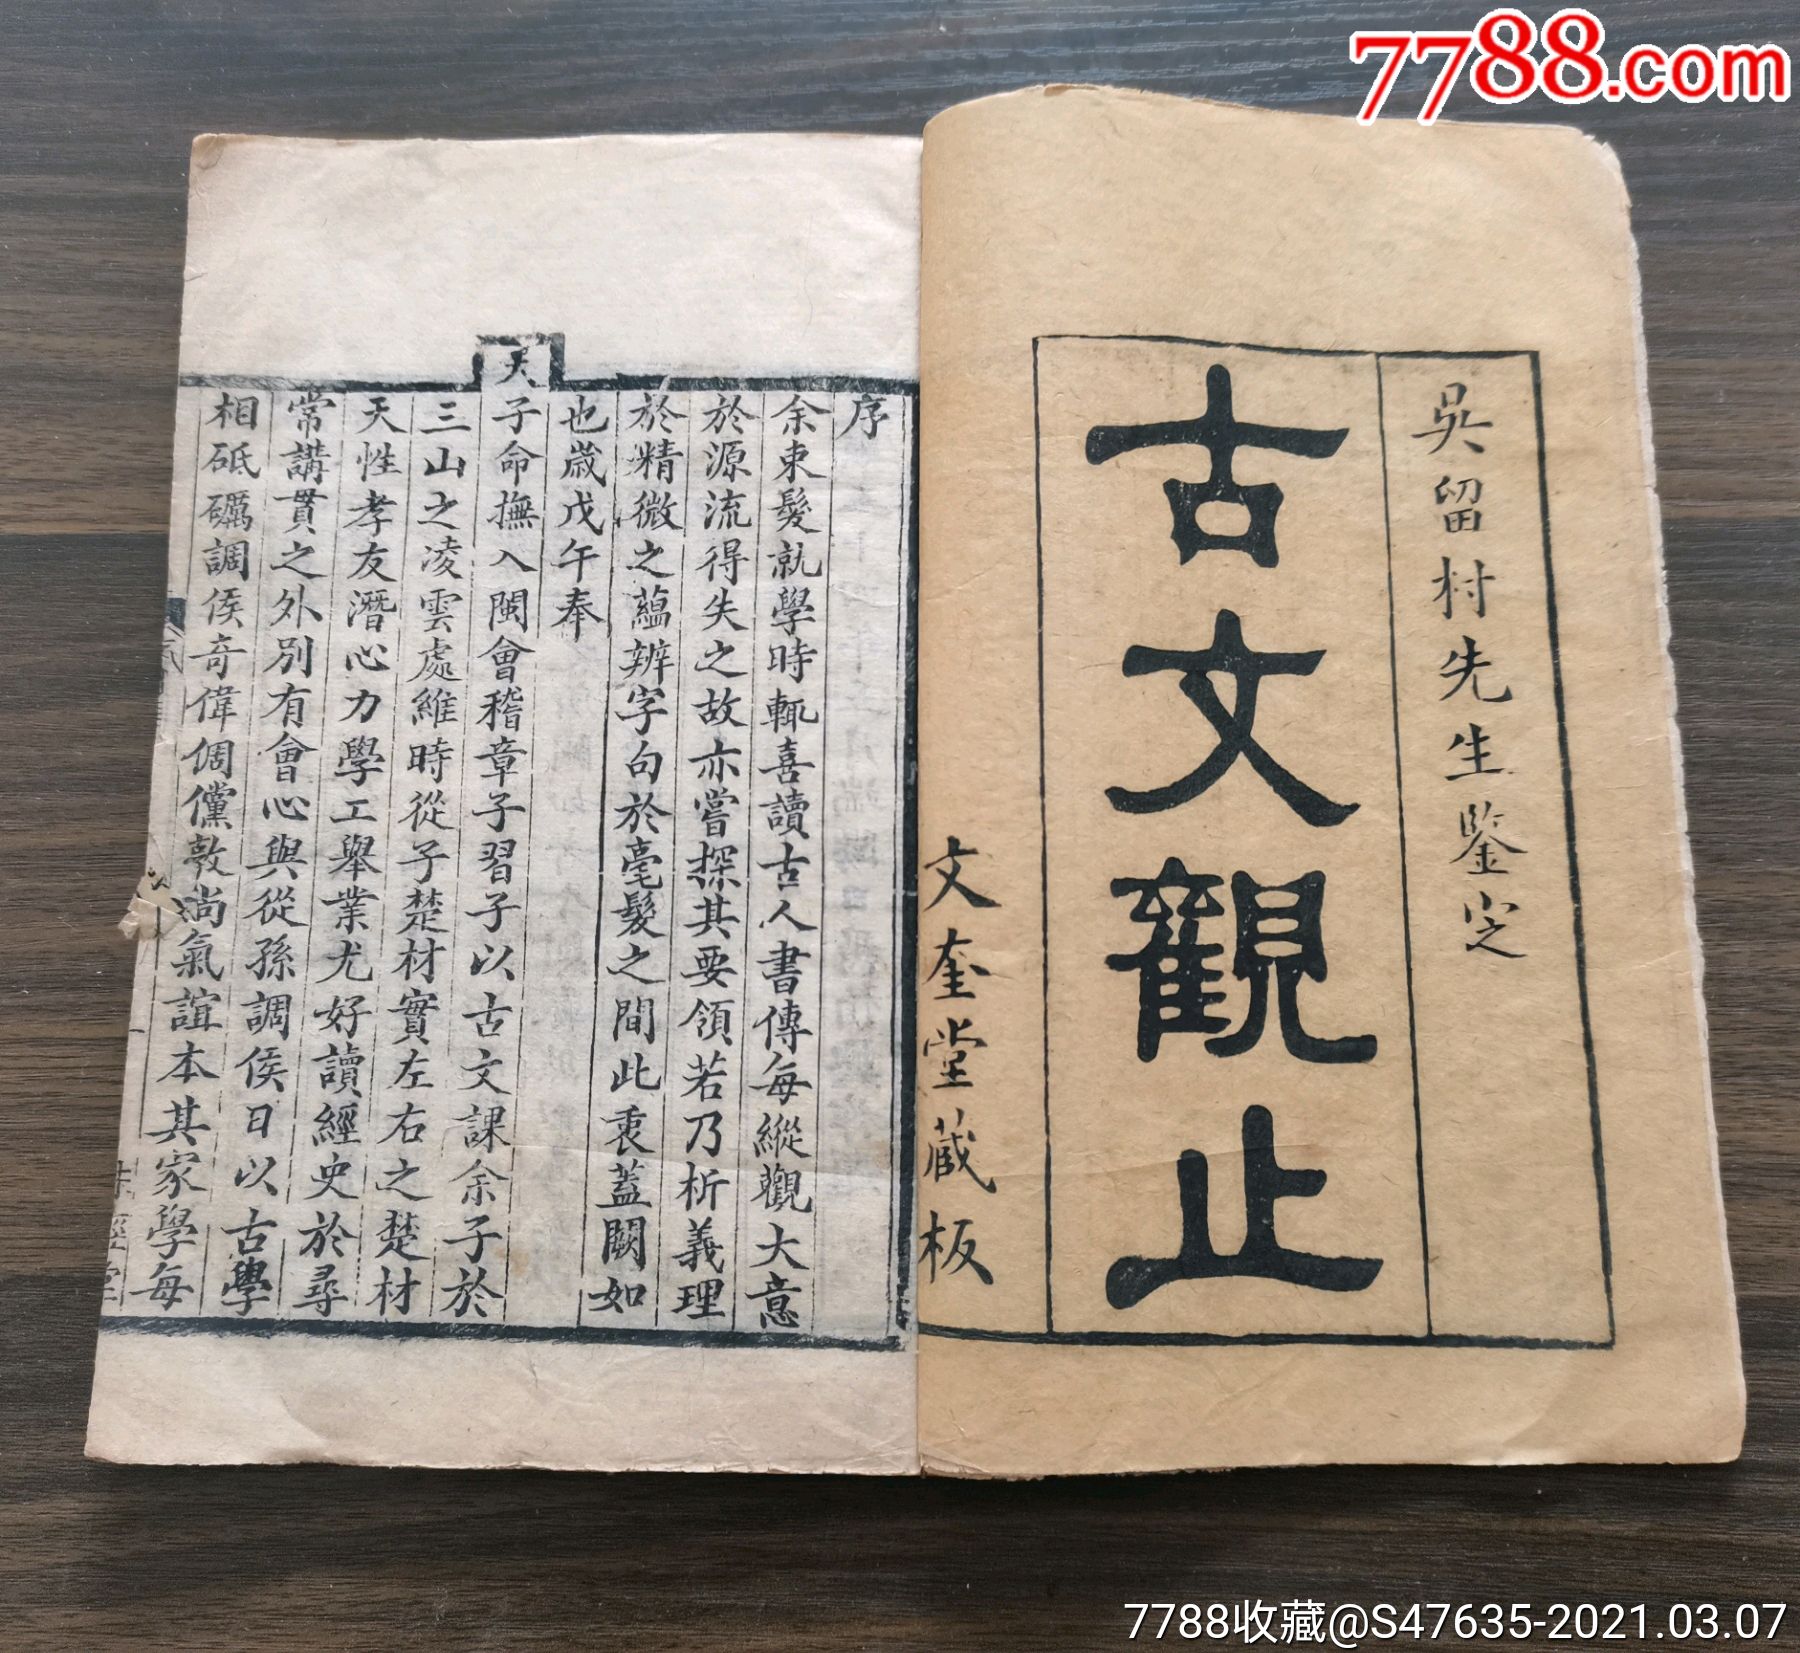 7788.com
吳留村先生鑒定
古文觀止
文奎堂藏板
序
余束髮就學時輒喜讀古人書傳每縱觀大意
於源流得失之故亦嘗探其要領若乃析義理
於精微之蘊辨字句於毫髮之間此衷蓋闕如
也歲戊午奉
天子命撫入閩會稽章子習子以古文課余子於
三山之凌雲處維時從子楚材實左右之楚材
天性孝友潛心力學工舉業尤好讀經史於尋
常講貫之外別有會心與從孫調侯日以古學
相砥礪調侯奇偉倜儻敦尚氣誼本其家學每
7788收藏@S47635-2021.03.07